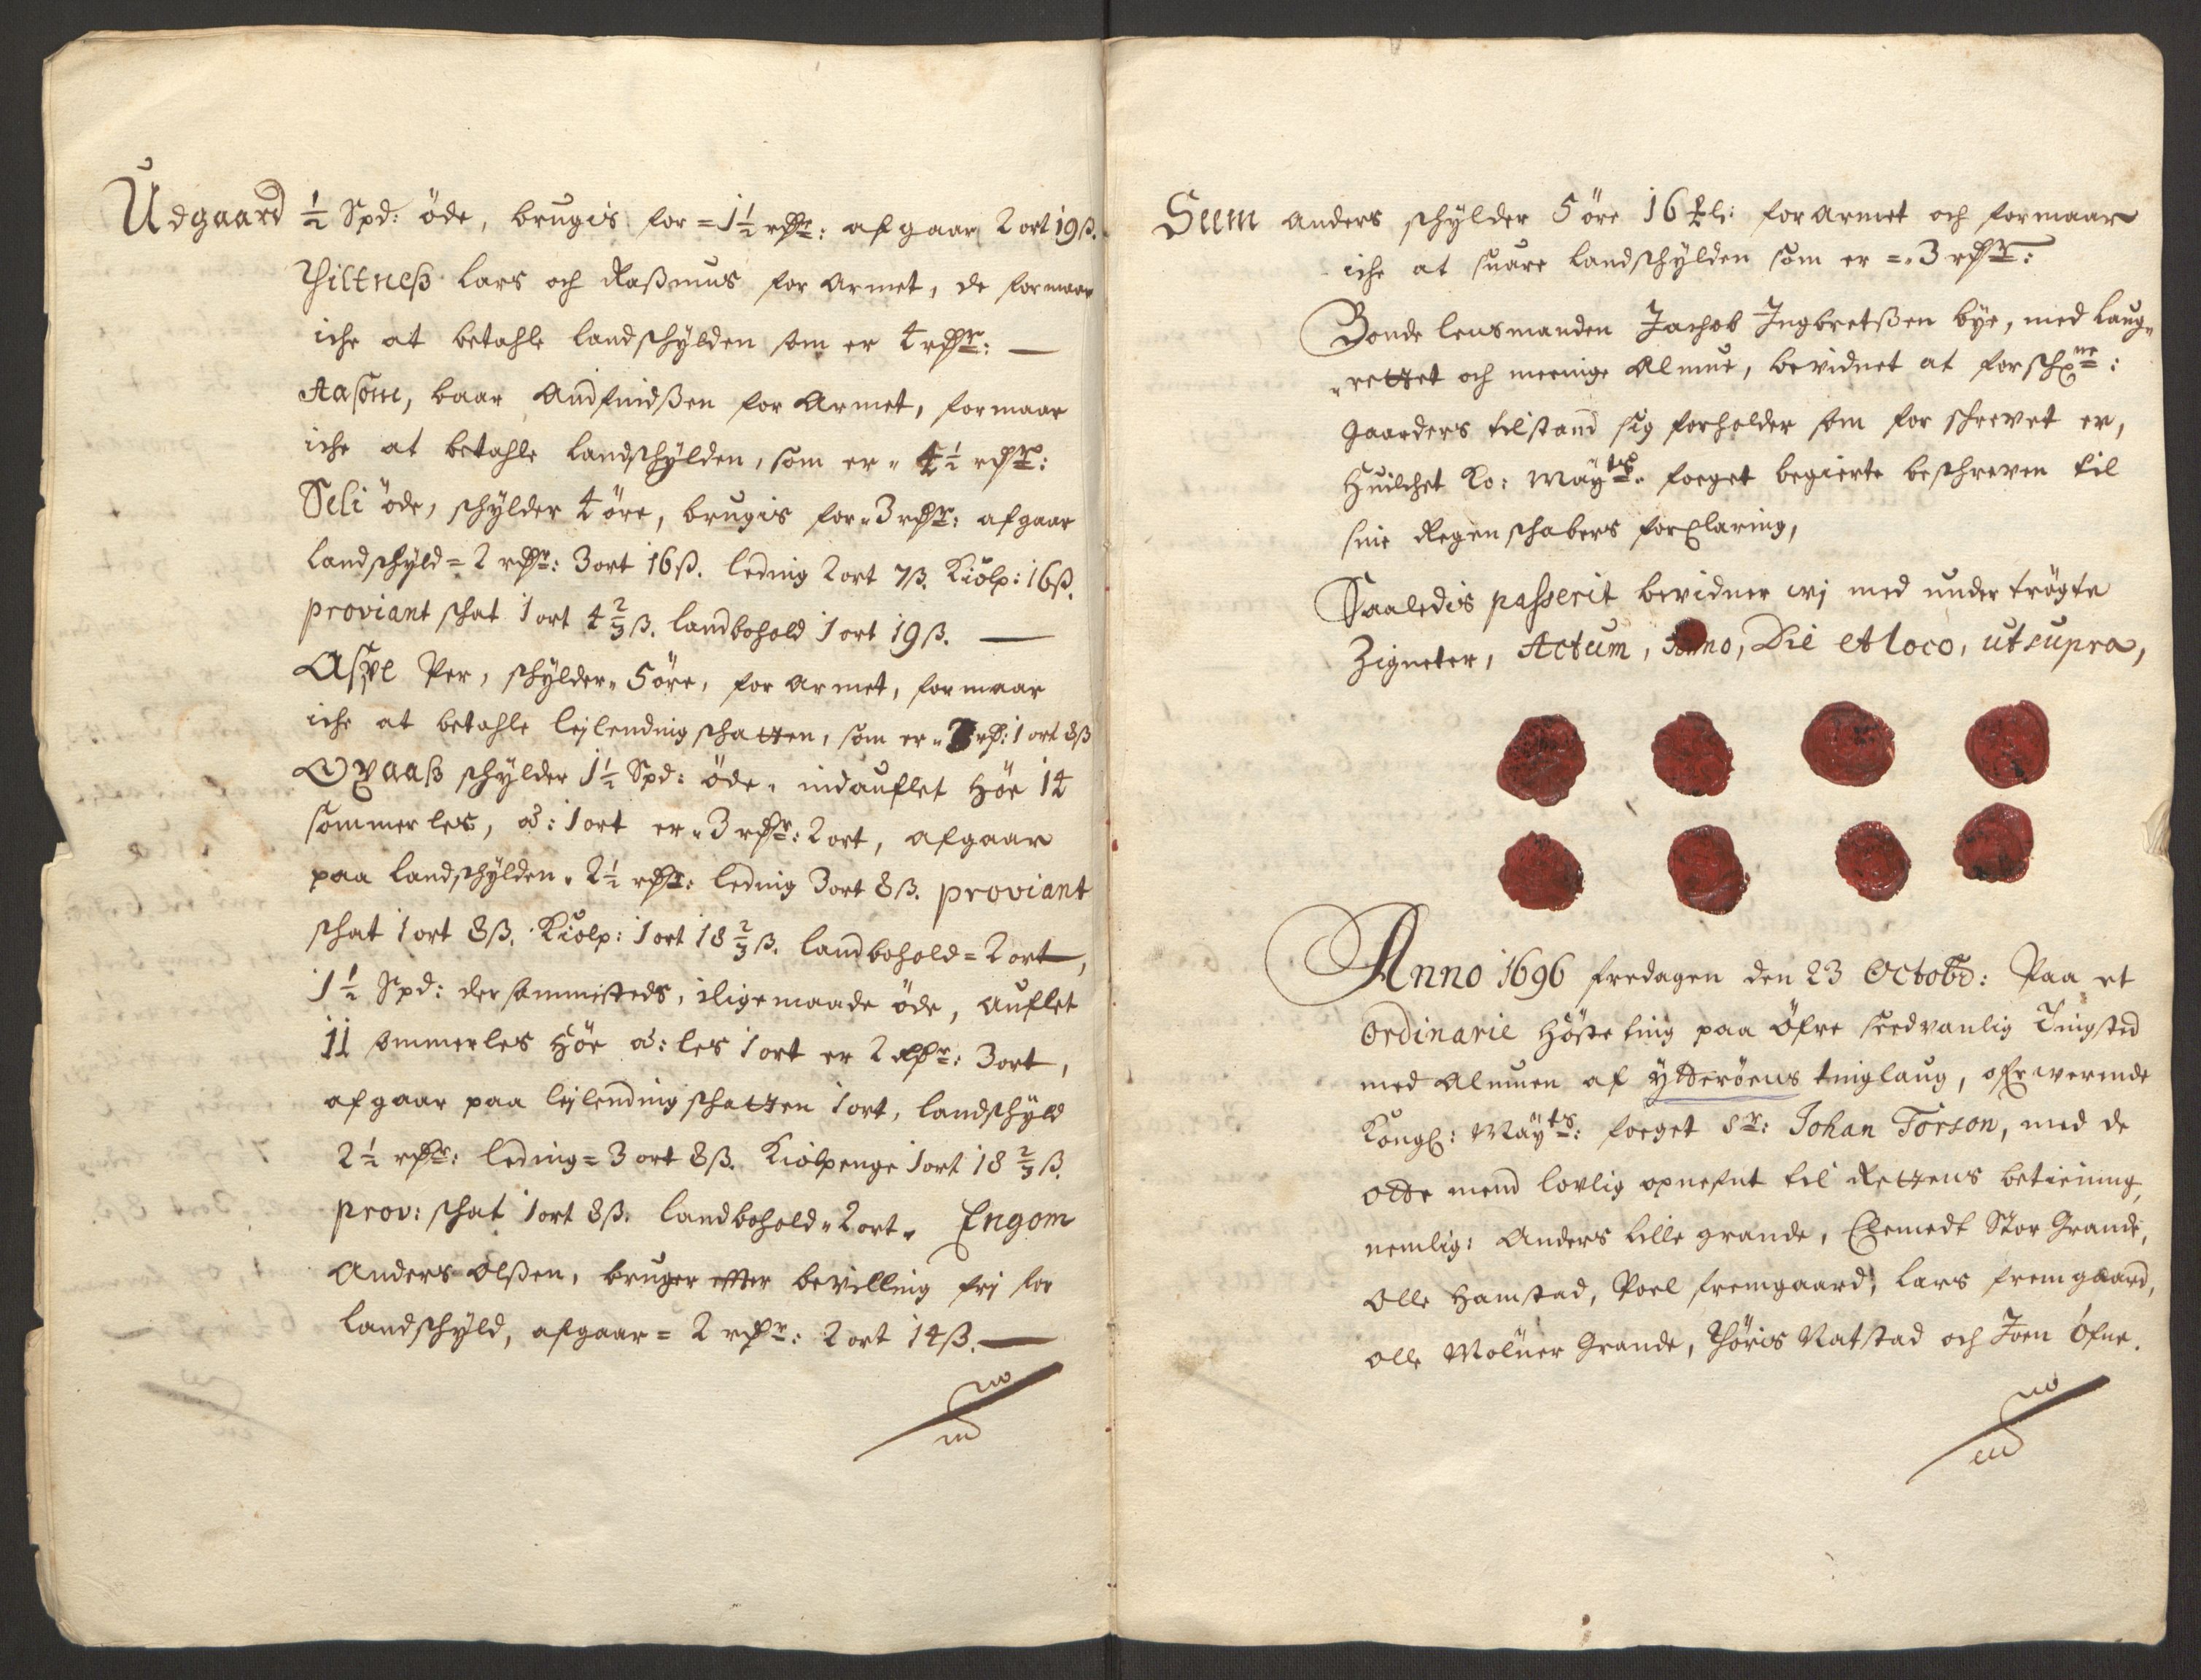 Udgaard ½ Spd: öde, brugis for = 1½ rdr: afgaar 2 ort 19ß.
Thiltneß Lars och Raßmus for Armet, de formaar
iche at betahle landschylden som er 4 rdr: —
Aasom, baar Andfindßen for Armet, formaar
iche at betahle landschylden, som er „ 4½ rdr:
Seli öde, schylder 4 öre, brugis for „ 3 rdr: afgaar
landschyld = 2 rdr: 3 ort 16ß. leding 2 ort 7ß. Kiölp: 16ß.
proviant schat 1 ort 4⅔ß. landbohold 1 ort 19ß. —
Aspe Per, schylder „ 5 öre, for armet, formaar
iche at betahle leilending schatten, som er „ rd: 1 ort 8ß
Oxaaß schylder 1½ Spd: öde, indauflet Höe 14
sommerles, â: 1 ort er „ 3 rdr: 2 ort, afgaar
paa landschylden „ 2½ rdr: leding 3 ort 8ß. proviant
schat 1 ort 8ß. Kiölp: 1 ort 18⅔ß. landbohold = 2 ort,
1½ Spd: dersammesteds, iligemaade öde, auflet
11 sommerles Höe â: les 1 ort er 2 rdr: 3 ort,
afgaar paa leilending schatten 1 ort, landschyld
2½ rdr: leding = 3 ort 8ß. Kiölpenge 1 ort 18⅔ß.
prov: schat 1 ort 8ß. landbohold „ 2 ort „ Engom
Anders Olßen, bruger efter bevilling fri for
landschyld, afgaar = 2 rdr: 2 ort 14ß. —
Seem Anders schylder 5 öre 16 for armet och formaar
iche at suare landschylden som er = „ 3 rdr:
Bonde lensmanden Jachob Ingbretßen bye, med laug„
„rettet och meenige Almue, bevidnet at forschne:
gaarders tilstand sig forholder som for schrevet er,
Huilchet Ko: Mayts. foeget begierte beschreven til
sine Regenschabers forclaring,
Saaledis passerit bevidner wj med undertrögte
Zigneter, Actum, Anno, Die et loco, ut supra,
Anno 1696 fredagen den 23 Octobr: Paa et
ordinarie Hösteting paa Öfre sædvanlig Tingsted
med Almuen af Ytteröens tinglaug, ofverwerende
Kongl: Mayts: foeget Sr: Johan Torson, med de
otte mend lovlig opnefnt til Rettens betiening,
nemlig: Anders Lille grande, Clemedt Stor Grande,
Olle Hamstad, Poel fremgaard, Lars fremgaard,
Olle Molner Grande, Thöris Natstad och Joen Öfne.